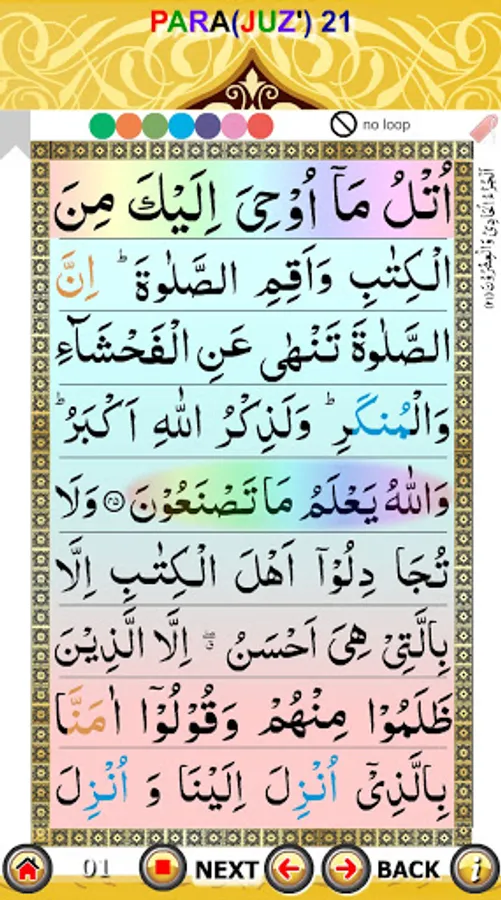 PARA(JUZ') 21
no loop
اَلْجُزْءُ الْحَادِيْ وَالْعِشْرُوْنَ (٢١)
اُتْلُ مَآ اُوْحِيَ اِلَيْكَ مِنَ
الْكِتٰبِ وَاَقِمِ الصَّلٰوةَ ؕ اِنَّ
الصَّلٰوةَ تَنْهٰى عَنِ الْفَحْشَآءِ
وَالْمُنْكَرِ ؕ وَلَذِكْرُ اللّٰهِ اَكْبَرُ ؕ
وَاللّٰهُ يَعْلَمُ مَا تَصْنَعُوْنَ ﴿۴۵﴾ وَلَا
تُجَا دِلُوْٓا اَهْلَ الْكِتٰبِ اِلَّا
بِالَّتِيْ هِيَ اَحْسَنُ ۖ اِلَّا الَّذِيْنَ
ظَلَمُوْا مِنْهُمْ وَقُوْلُوْٓا اٰمَنَّا
بِالَّذِيْٓ اُنْزِلَ اِلَيْنَا وَ اُنْزِلَ
01 NEXT BACK i